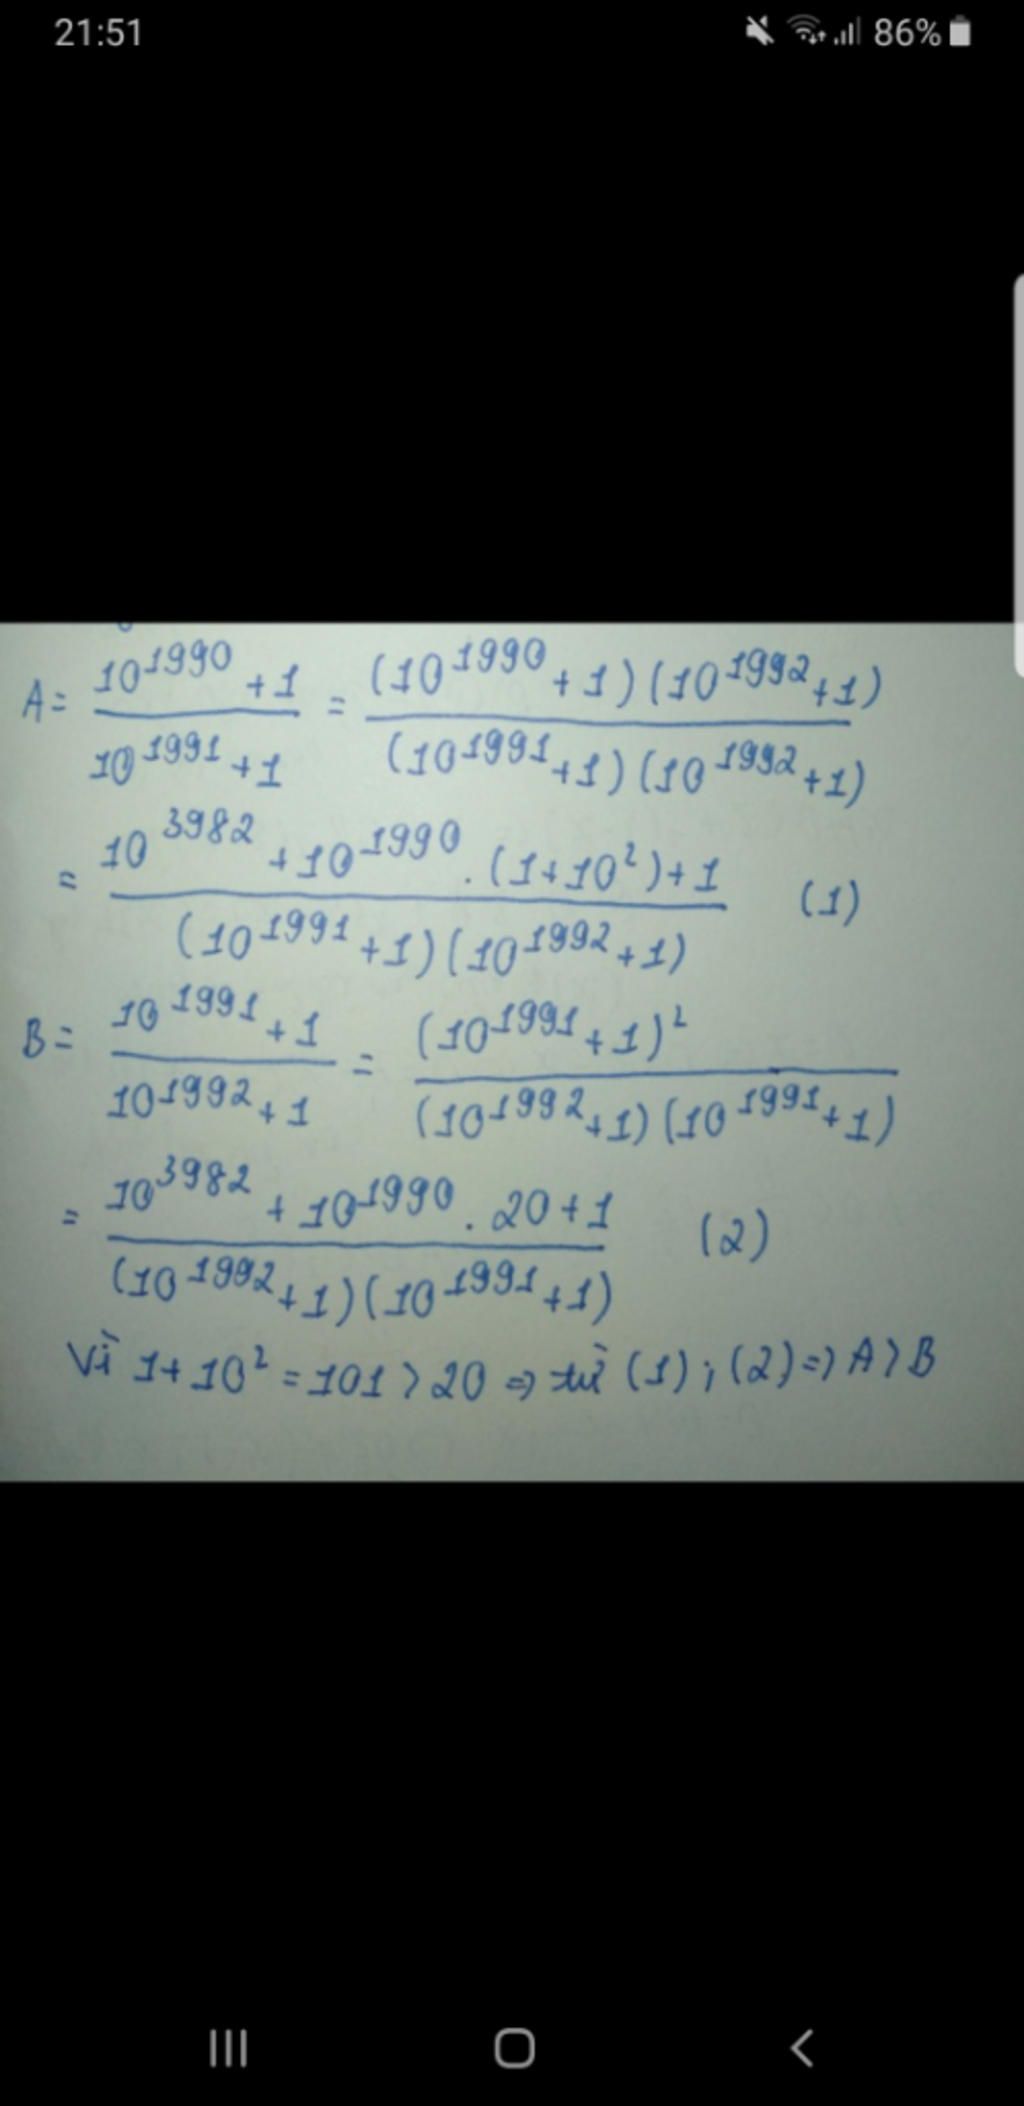 21:51 86%
A = \frac{10^{1990}+1}{10^{1991}+1} = \frac{(10^{1990}+1)(10^{1992}+1)}{(10^{1991}+1)(10^{1992}+1)}
= \frac{10^{3982}+10^{1990}.(1+10^2)+1}{(10^{1991}+1)(10^{1992}+1)} (1)
B = \frac{10^{1991}+1}{10^{1992}+1} = \frac{(10^{1991}+1)^2}{(10^{1992}+1)(10^{1991}+1)}
= \frac{10^{3982}+10^{1990}.20+1}{(10^{1992}+1)(10^{1991}+1)} (2)
Vì 1+10^2 = 101 > 20 => từ (1); (2) => A > B